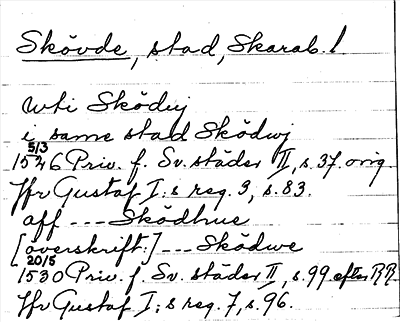 Skövde, stad, Skarab. l.
uti Sködvj
i same stad Sködwj
5/3
1526 Priv. f. Sv. städer II, s. 37. orig.
Jfr Gustaf I:s reg. 3, s. 83.
aff --- Sködhue
[överskrift:] --- Sködwe
20/5
1530 Priv. f. Sv. städer II, s. 99 efter RR.
Jfr Gustaf I:s reg. 7, s. 96.